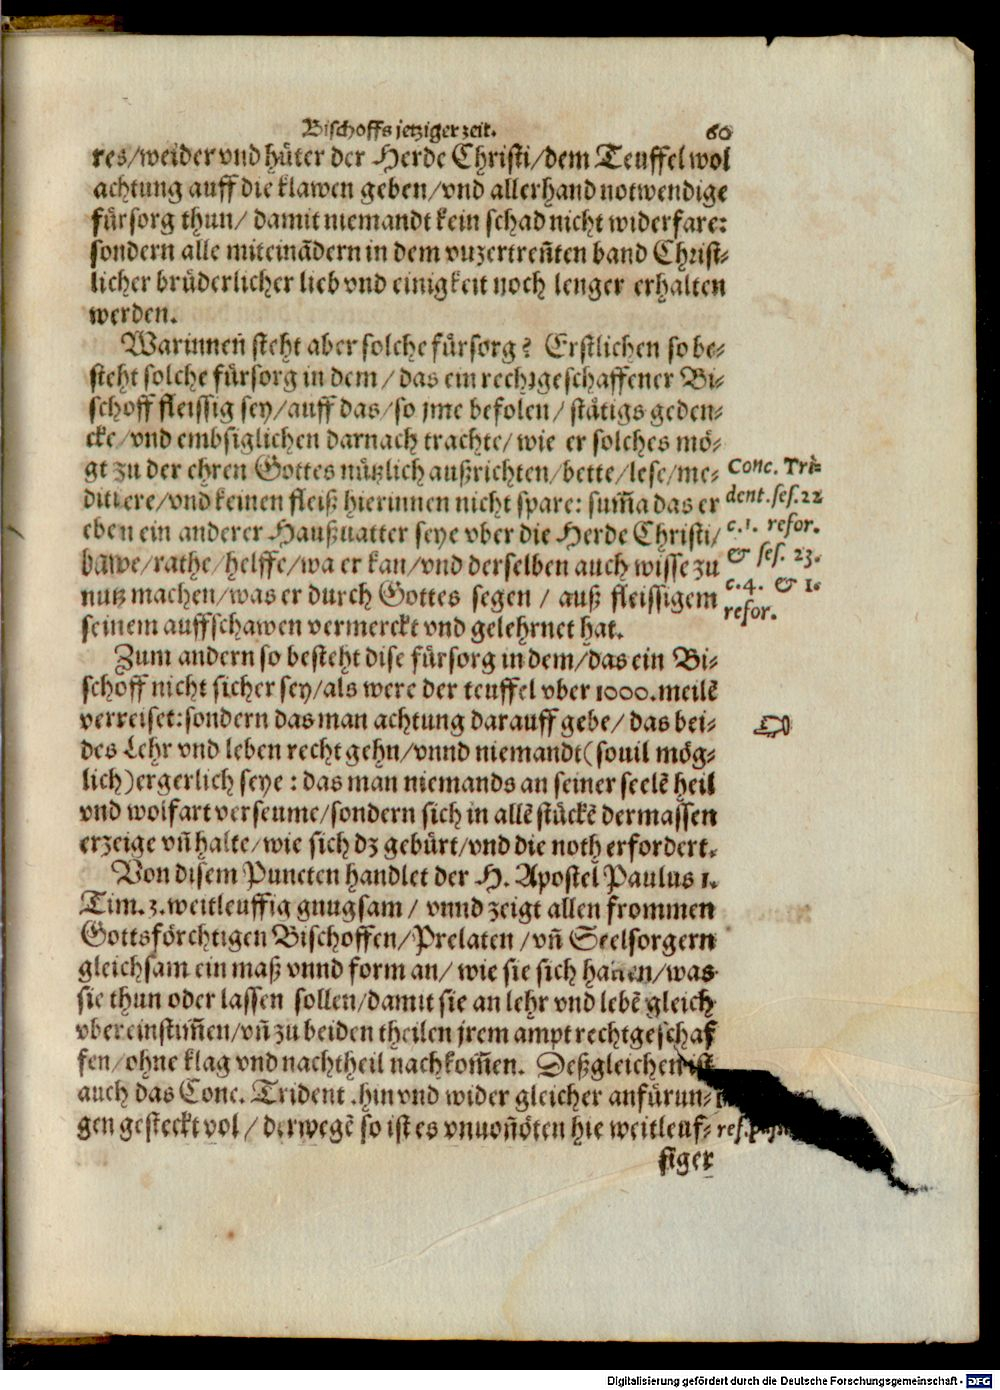 Bischoffs jetziger zeit. 60
res/weider vnd hüter der Herde Christi/dem Teuffel wol
achtung auff die klawen geben/vnd allerhand notwendige
fürsorg thun/ damit niemandt kein schad nicht widerfare:
sondern alle miteinãdern in dem vnzertreñten band Christ-
licher brüderlicher lieb vnd einigkeit noch lenger erhalten
werden.
Warinneñ steht aber solche fürsorg? Erstlichen so be-
steht solche fürsorg in dem/das ein rechtgeschaffener Bi-
schoff fleissig sey/auff das/so jme befolen/ stätigs geden-
cke/vnd embsiglichen darnach trachte/ wie er solches mö-
gt zu der ehren Gottes nützlich außrichten/bette/lese/me-
ditiere/vnd keinen fleiß hierinnen nicht spare: sum̃a das er
eben ein anderer Haußuatter seye vber die Herde Christi/
bawe/rathe/helffe/wa er kan/vnd derselben auch wisse zu
nutz machen/was er durch Gottes segen / auß fleissigem
seinem auffschawen vermerckt vnd gelehrnet hat.
Conc. Tri-
dent. ses. 22
c. 1. refor.
& ses. 23.
c. 4. & 1.
refor.
Zum andern so besteht dise fürsorg in dem/das ein Bi-
schoff nicht sicher sey/als were der teuffel vber 1000. meilẽ
verreiset: sondern das man achtung darauff gebe/ das bei-
des Lehr vnd leben recht gehn/vnnd niemandt(souil mög-
lich)ergerlich seye: das man niemands an seiner seelẽ heil
vnd wolfart verseume/sondern sich in allẽ stückẽ dermassen
erzeige vñ halte/wie sich dz gebürt/vnd die noth erfordert.
Von disem Puncten handlet der H. Apostel Paulus 1.
Tim. 3. weitleuffig gnugsam / vnnd zeigt allen frommen
Gottsförchtigen Bischoffen/Prelaten /vñ Seelsorgern
gleichsam ein maß vnnd form an/ wie sie sich halten/was
sie thun oder lassen sollen/damit sie an lehr vnd lebẽ gleich
vbereinstim̃en/vñ zu beiden theilen jrem ampt rechtgeschaf
fen/ohne klag vnd nachtheil nachkom̃en. Deßgleichen ist
auch das Conc. Trident. hin vnd wider gleicher anfürun-
gen gesteckt vol/ derwegẽ so ist es vnuoñöten hie weitleuf-
ref.
figer
Digitalisierung gefördert durch die Deutsche Forschungsgemeinschaft - DFG